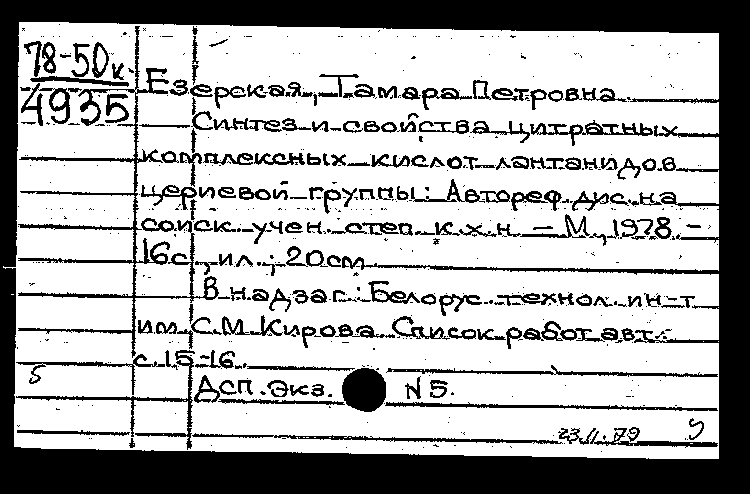 78-50к
4935
Езерская, Тамара Петровна
Синтез и свойства цитратных
комплексных кислот лантанидов
цериевой группы: Автореф. дис. на
соиск учен. степ. к.х.н. – М., 1978. –
16с., ил.; 20см.
В надзаг: Белорус. технол. ин-т
им С.М. Кирова. Список работ авт.:
с. 15-16.
5
ДСП. Экз. N 5.
23.II.79